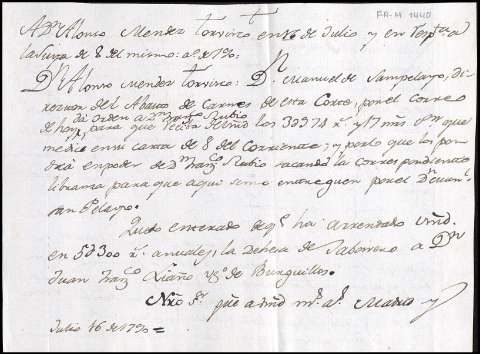 FR-M 1440
A Dn Alonso Mendez Torvisco en 16 de Julio y en respta a
la suya de 8 del mismo: aº de 1790.
Dn Alonso Mendez Torvisco: Dn Manuel de Sampelayo, Di-
rector del Abasto de Carnes de esta Corte, por el correo
da orden a Dn Franco Rubio
de hoy, para que reciva de Vmd los 39374 rs y 17 mrs que
me dice en su carta de 8 del Corriente; y por lo que los pon-
drá en poder de Dn Franco Rubio sacando la correspondiente
libranza para que aqui se me entreguen por el Dn Manl
San Pelayo.
Quedo enterado de qe ha arrendado Vmd.
en 5300 rs anuales, la Dehesa de a Dn
Juan Franco Liaño vº de Burguillos.
Nro Sr. gue a Vmd ms as Madrid y
Julio 16 de 1790=